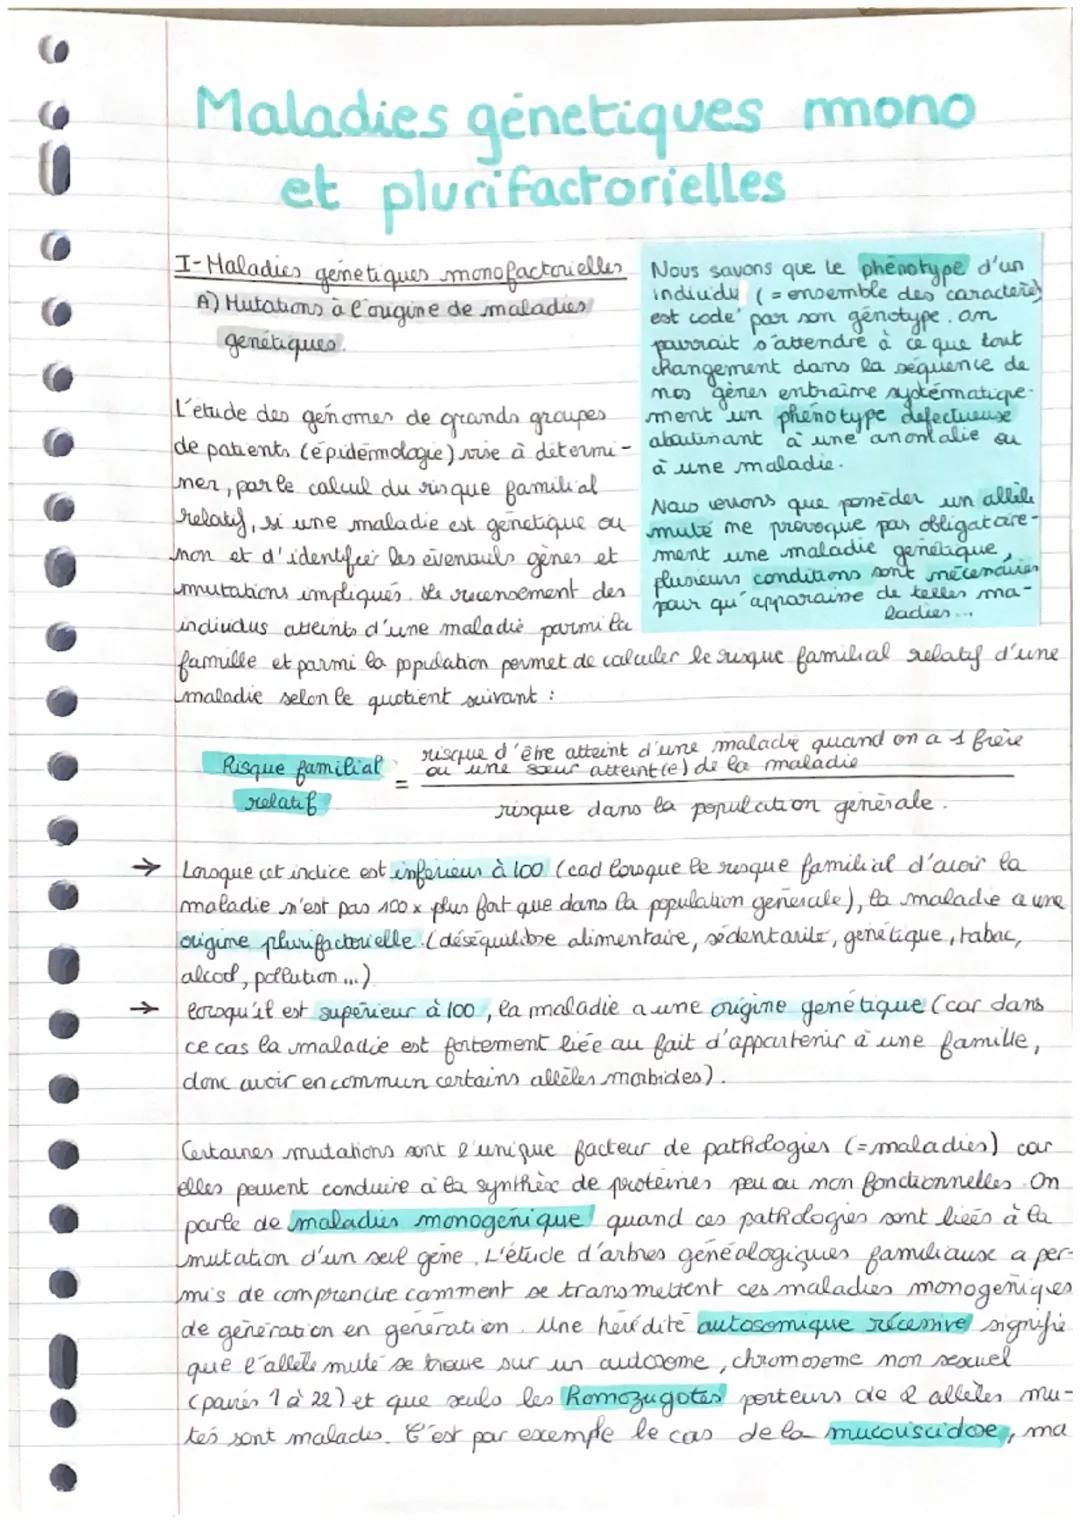 Maladies génétiques mono
et plurifactorielles
I- Maladies génétiques monofactorielles
A) Mutations à l'origine de maladies
génétiques.
Nous savons que le phénotype d'un
individu (= ensemble des caractères)
est codé par son génotype. on
pourrait s'attendre à ce que tout
changement dans la séquence de
nos gènes entraîne systématique-
ment un phénotype défectueuse
aboutinant à une anomalie ou
à une maladie.
Nous verrons que posséder un allèle
muté ne provoque pas obligatoire-
ment une maladie génétique,
plusieurs conditions sont nécessaires
pour qu'apparaisse de telles ma-
ladies...
L'étude des génomes de grands groupes
de patients (épidémologie) vise à détermi-
ner, par le calcul du risque familial
relatif, si une maladie est génétique ou
non et d'identifier les éventuels gènes et
mutations impliqués. Le recensement des
individus atteints d'une maladie parmi la
famille et parmi la population permet de calculer le risque familial relatif d'une
maladie selon le quotient suivant :
Risque familial relatif = risque d'être atteint d'une maladie quand on a 1 frère
ou une sœur atteint(e) de la maladie
risque dans la population générale.
→ Lorsque cet indice est inférieur à 100 (cad lorsque le risque familial d'avoir la
maladie n'est pas 100 x plus fort que dans la population générale), la maladie a une
origine plurifactorielle (déséquilibre alimentaire, sédentarité, génétique, tabac,
alcool, pollution ...)
→ lorsqu'il est supérieur à 100, la maladie a une origine génétique (car dans
ce cas la maladie est fortement liée au fait d'appartenir à une famille,
donc avoir en commun certains allèles morbides).
Certaines mutations sont l'unique facteur de pathologies (= maladies) car
elles peuvent conduire à la synthèse de protéines peu ou non fonctionnelles. On
parle de maladies monogénique quand ces pathologies sont liées à la
mutation d'un seul gène. L'étude d'arbres généalogiques familiaux a per-
mis de comprendre comment se transmettent ces maladies monogéniques
de génération en génération. Une hérédité autosomique récessive signifie
que l'allèle muté se trouve sur un autosome, chromosome non sexuel
(paires 1 à 22) et que seuls les homozygotes porteurs de 2 allèles mu-
tés sont malades. C'est par exemple le cas de la mucoviscidose, ma